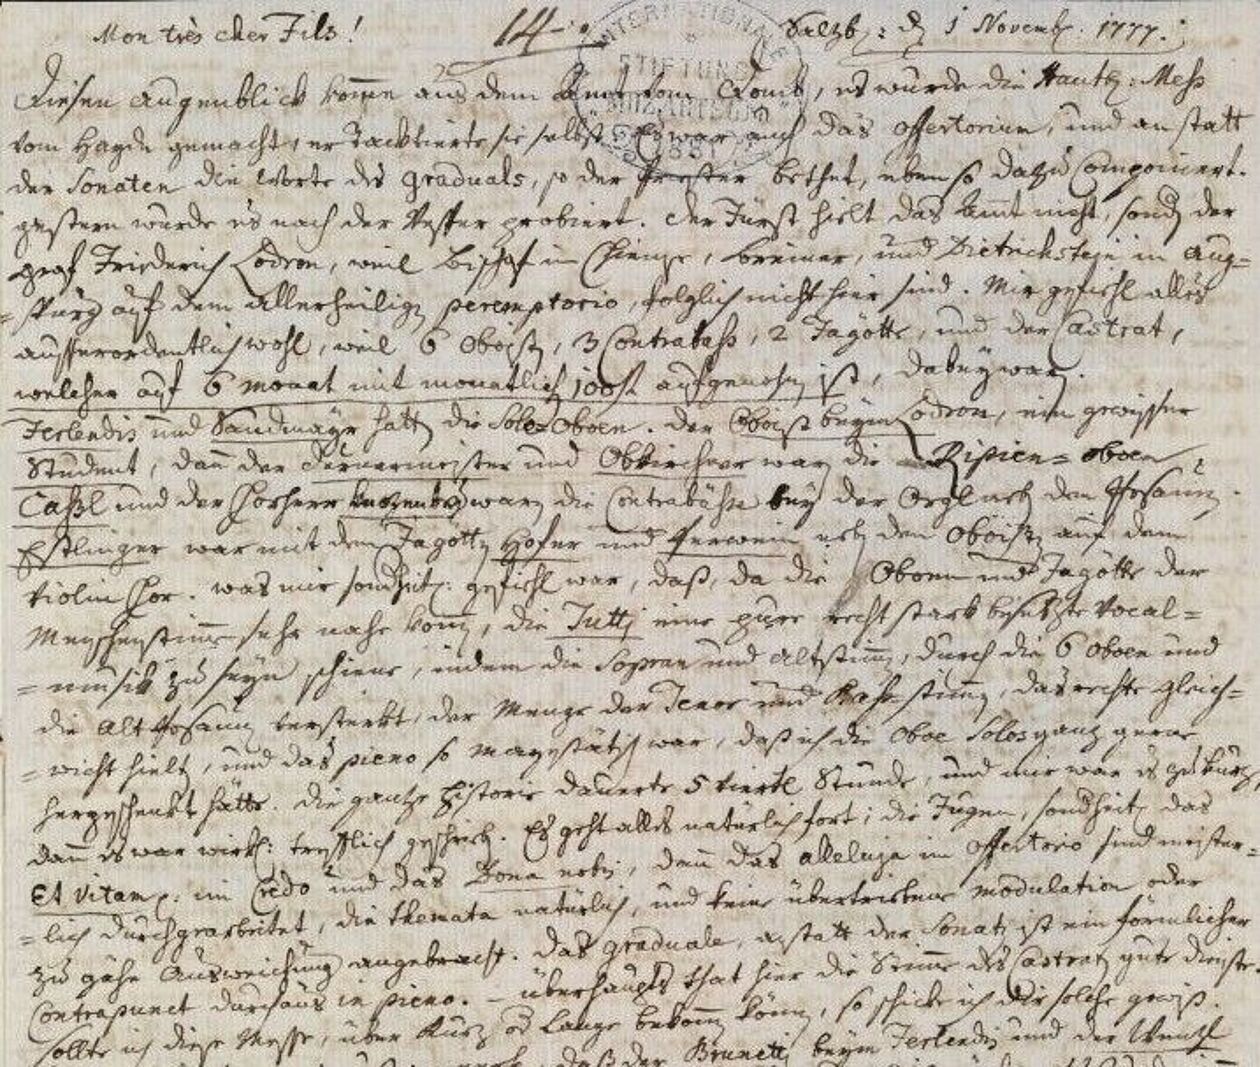 Mon très cher Fils! 14. Salzb: den 1 Novemb. 1777.
INTERNATIONALE STIFTUNG MOZARTEUM
Diesen augenblick komme aus dem Amt vom Domb, es wurde die Hautb: Mess
vom Haydn gemacht, er Tacktierte sie selbst, Es war auch das offertorium, und anstatt
der Sonaten die Worte des graduals, so der Priester bethet, eben so dazu Componiert.
gestern wurde es nach der Vesper probiert. der Fürst hielt das Ammt nicht, sond der
graf Friederich Lodron, weil Bischof in Chiemse, breiner, und Dietrichstein in Aug=
=spurg auf dem Allerheiligen peremptorio, folglich nicht hier sind. Mir gefiehl alles
ausserordentlich wohl, weil 6 Oboisten, 3 Contrabaß, 2 Fagötte, und der Castrat,
welcher auf 6 monat mit monatlich 100f aufgenohmen ist, dabey waren.
Ferlendis und Sandmayr hatten die Solo Oboen. der Oboist beym Lodron, ein gewisser
Student, dann der Türnermeister und Obkircher waren die Ripien=oboen,
Caßl und der Chorherr waren die Contrabässe bey der Orgl neben den Posaunen.
Estlinger war mit dem Fagotte, Hofer und Perwein neben den Oboisten auf dem
Violin Chor. was mir sonderheitl: gefiehl war, daß, da die Oboen und Fagötte der
Menschenstimme sehr nahe kommen, die Tutti eine pure recht stark besetzte Vocal=
=musik zu seyn schiene, indem die Sopran und Altstimmen, durch die 6 Oboen und
die Alt Posaunen versterkt, der Menge der Tenor und Bass-stimmen, das rechte gleich=
=wicht hielten, und das pieno so Magestätisch war, daß ich die Oboe Solos ganz gerne
hergeschenkt hätte. die ganze Historie dauerte 5 viertl Stunde, und mir war es zu kurz,
dann es war wirkl: trefflich geschrieben. Es geht alles natürlich fort; die Fugen, sonderheitl: das
Et vitam p: im Credo und das Dona nobis, dann das alleluja im offertorio sind meister=
=lich durchgearbeitet, die themata natürlich, und keine übertriebene modulation oder
zu gähe Ausweichungen angebracht. das graduale, anstatt der Sonate ist ein förmlicher
Contrapunct durchaus in pieno. – überhaupts that hier die Stimme des Castraten gute Dienste.
sollte ich diese Messe, über kurz od Lange bekommen können, so schicke ich dir solche gewiß.
daß der Brunetti beym Ferlendis und der Wenzl